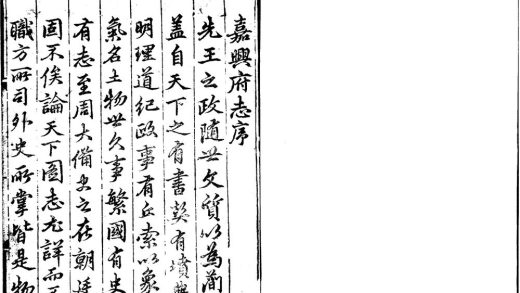 嘉興府志序
先王之政随世文質以為蕳
盖自天下之有書契有墳典
明理道紀政事有丘索以象
氣名土物世久事繁國有史
有志至周大備史之在朝廷
固不俟論天下圖志尤詳而
職方所司外史所掌皆是物